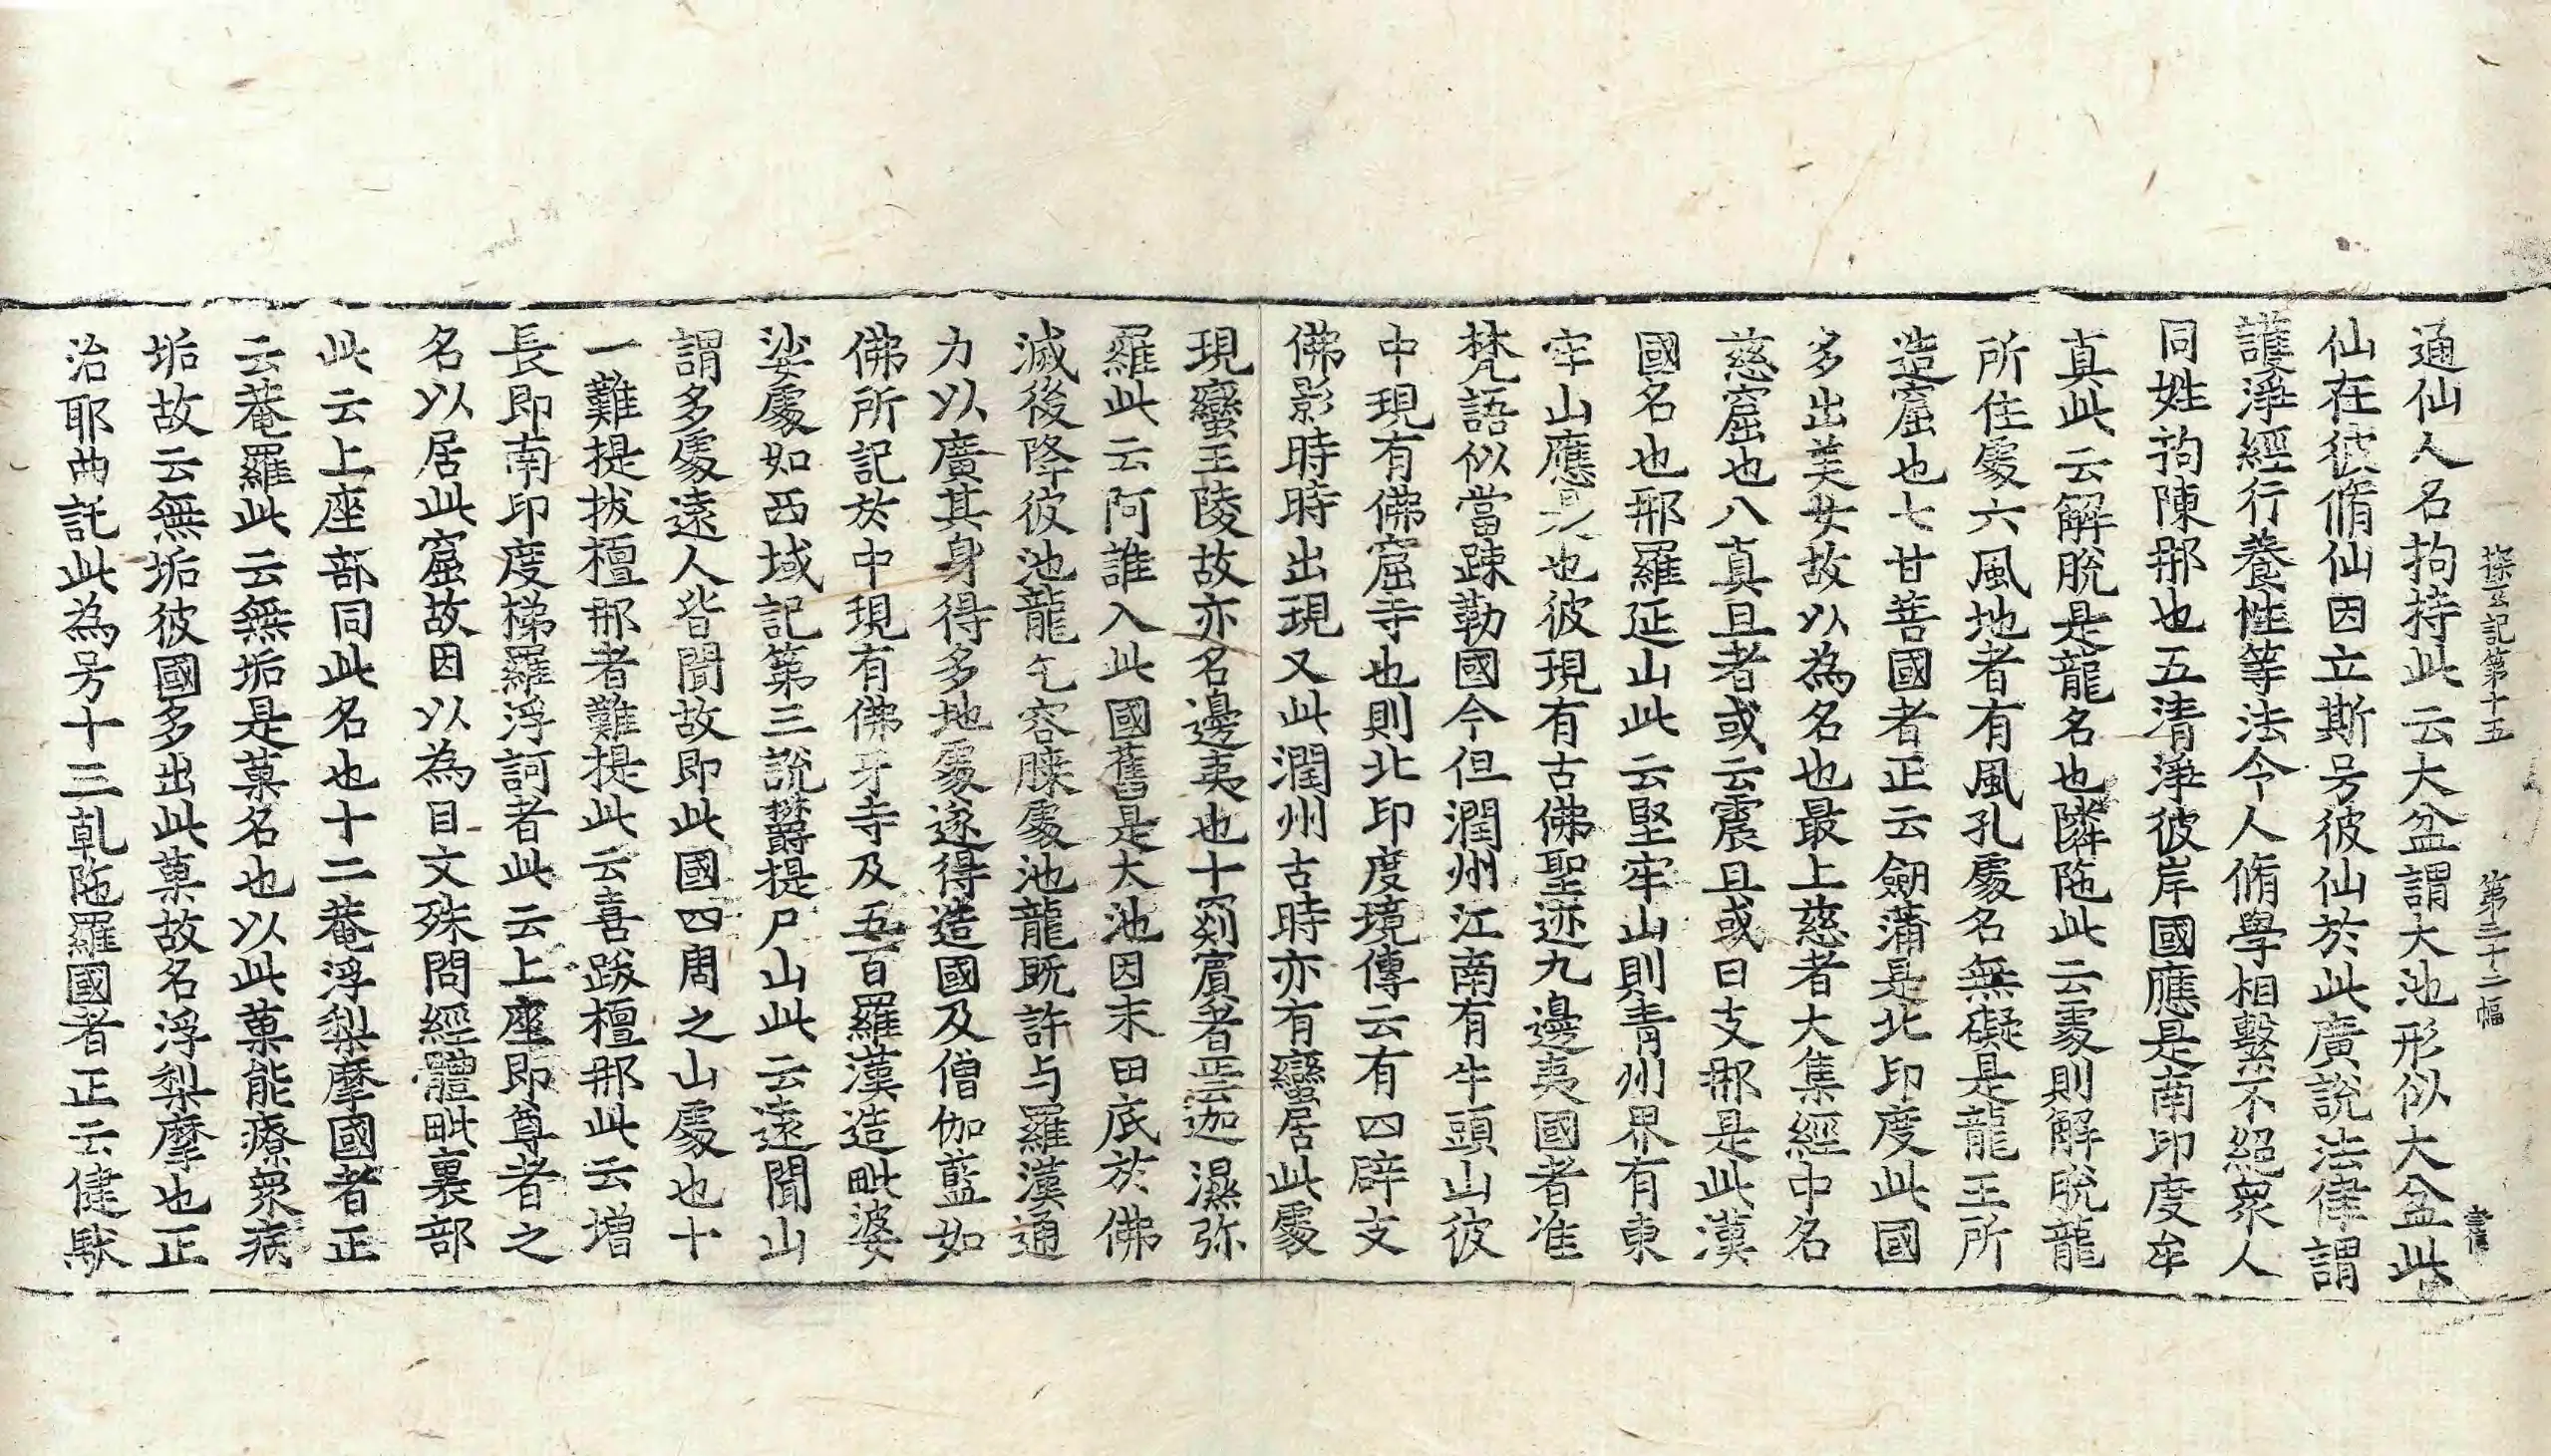 探玄記第十五 第二十二幅
通仙人名拘持此云大盆謂大池形似大盆此
仙在彼脩仙因立斯号彼仙於此廣說法律謂
護淨經行養性等法令人脩學相繫不絕衆人
同姓拘陳那也五清淨彼岸國應是南印度牟
真此云解脫是龍名也隣陁此云處則解脫龍
所住處六風地者有風孔處名無礙是龍王所
造窟也七甘菩國者正云劒蒲是北印度此國
多出美女故以為名也最上慈者大集經中名
慈窟也八真旦者或云震旦或曰支那是此漢
國名也那羅延山此云堅牢山則青州界有東
牢山應是也彼現有古佛聖迹九邊夷國者准
梵語似當踈勒國今但潤州江南有牛頭山彼
中現有佛窟寺也則北印度境傳云有四辟支
佛影時時出現又此潤州古時亦有蠻居此處
現蠻王陵故亦名邊夷也十罽賓者正云迦濕弥
羅此云阿誰入此國舊是大池因末田底於佛
滅後降彼池龍乞容膝處池龍既許与羅漢通
力以廣其身得多地處遂得造國及僧伽藍如
佛所記於中現有佛牙寺及五百羅漢造毗婆
娑處如西域記第三說欝提尸山此云遠聞山
謂多處遠人皆聞故即此國四周之山處也十
一難提拔檀那者難提此云喜跋檀那此云增
長即南印度梯羅浮訶者此云上座即尊者之
名以居此窟故因以為目文殊問經體毗裏部
此云上座部同此名也十二菴浮梨摩國者正
云菴羅此云無垢是菓名也以此菓能療衆病
垢故云無垢彼國多出此菓故名浮梨摩也正
治耶曲託此為号十三乹陁羅國者正云健馱